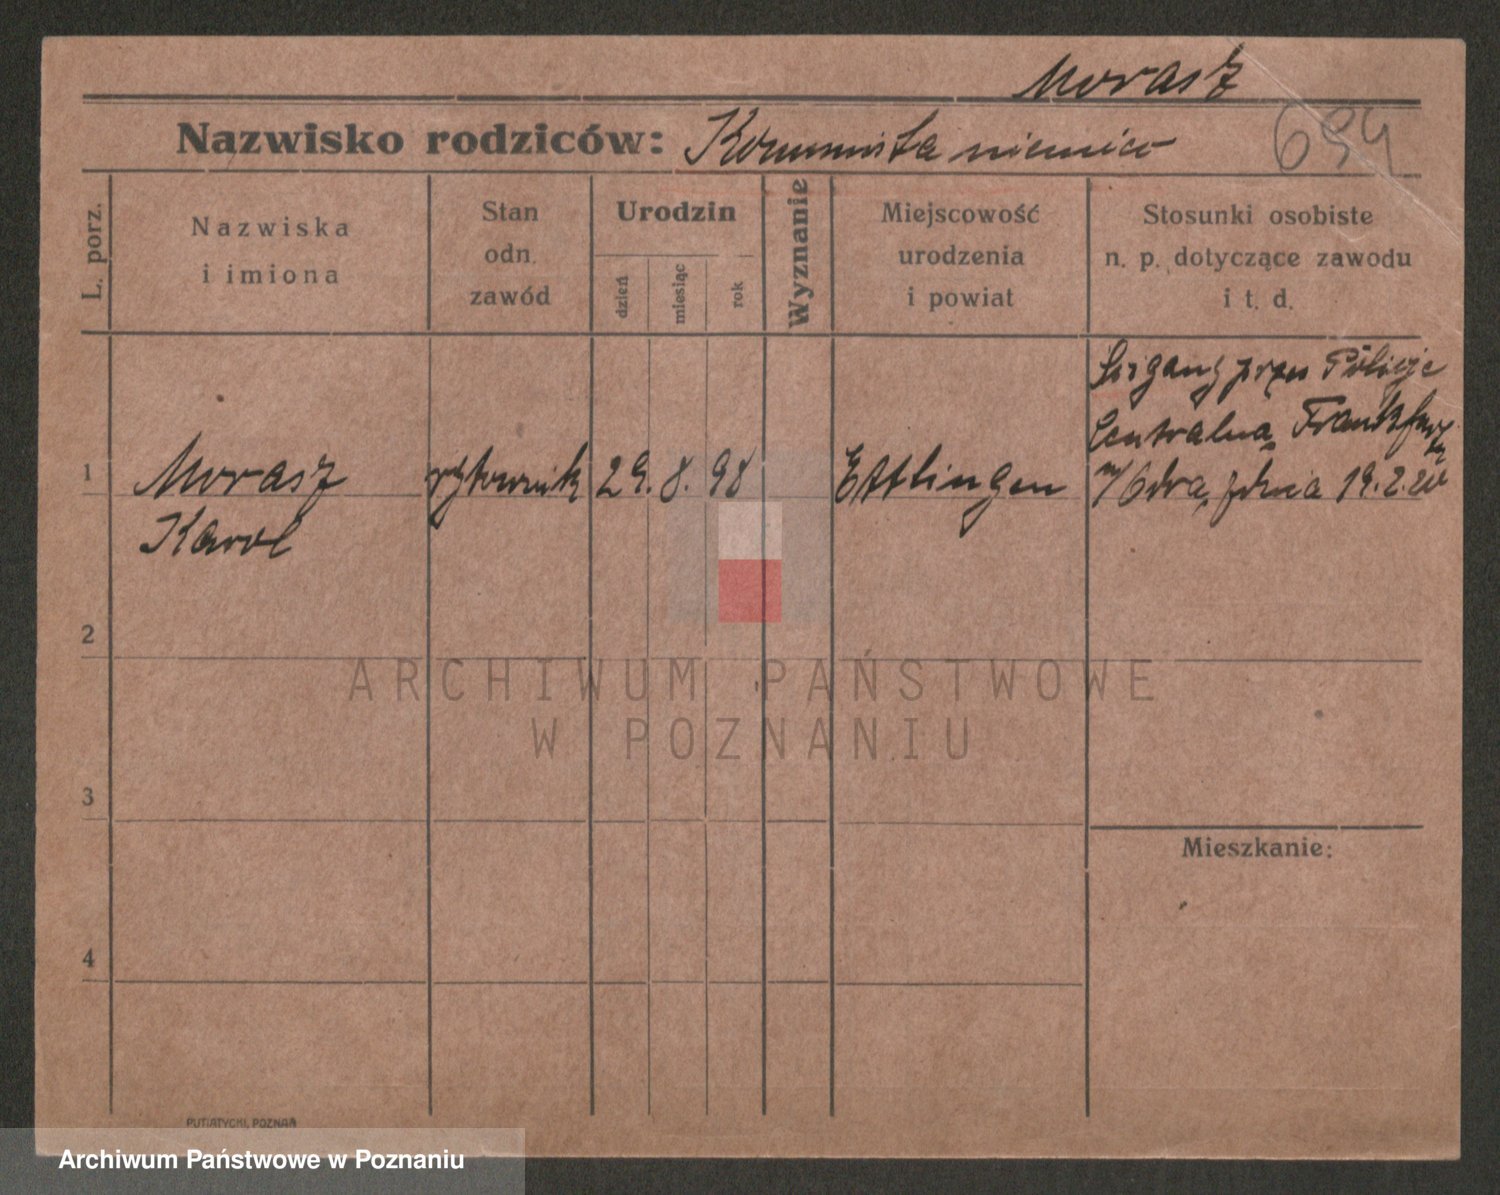 Morasz
Nazwisko rodziców: Komunista niemiec 694
L. porz.
Nazwiska
i imiona
Stan
odn.
zawód
Urodzin
dzień
miesiąc
rok
Wyznanie
Miejscowość
urodzenia
i powiat
Stosunki osobiste
n. p. dotyczące zawodu
i t. d.
1
Morasz
Karol
rytownik
29. 8. 98
Ettlingen
Ścigany przez Policję
Centralną Frankfurt
n/Odrą z dnia 19.2.20
2
ARCHIWUM PAŃSTWOWE
W POZNANIU
3
Mieszkanie:
4
PUTIATYCKI, POZNAŃ
Archiwum Państwowe w Poznaniu